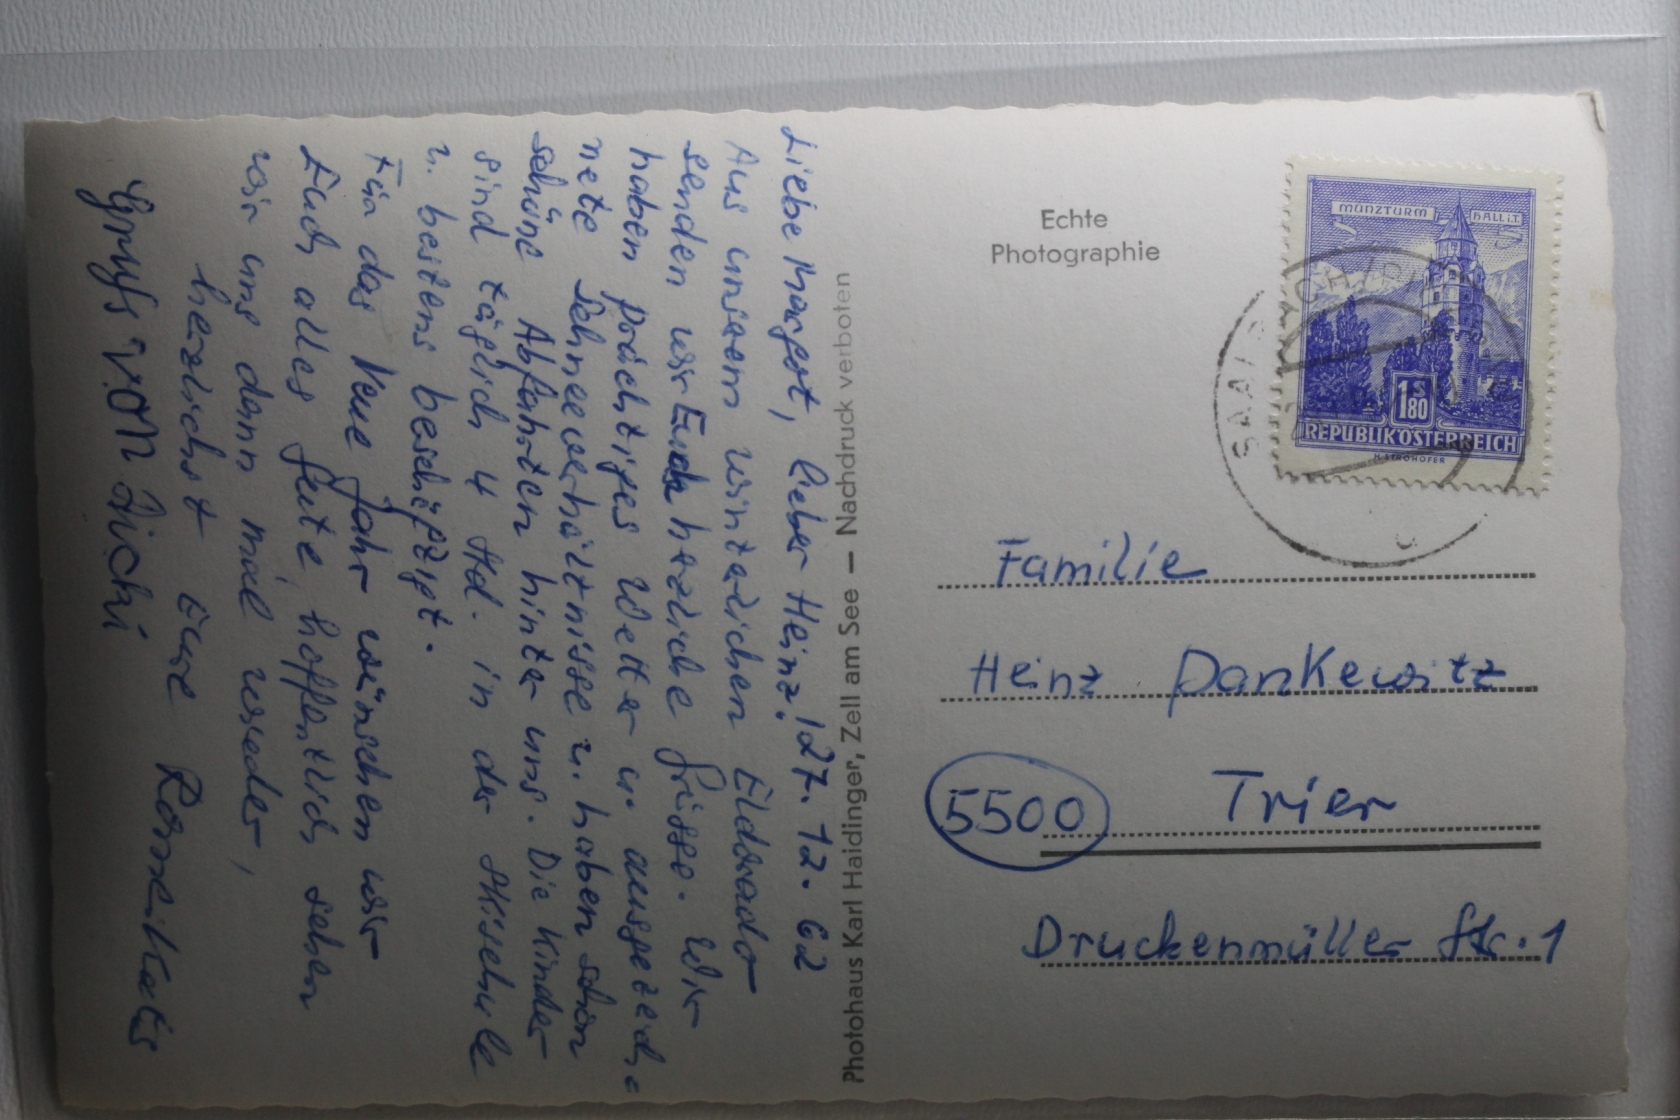 Liebe Margot, lieber Heinz! 27. 12. 62
Aus unserm winterlichen Eldorado
senden wir Euch herzliche Grüsse. Wir
haben prächtiges Wetter u. ausgezeich-
nete Schneeverhältnisse u. haben schon
schöne Abfahrten hinter uns. Die Kinder
sind täglich 4 Std. in der Skischule
u. bestens beschäftigt.
Für das Neue Jahr wünschen wir
Euch alles Gute, hoffentlich sehen
wir uns dann mal wieder,
herzlichst Eure
Gruß von Michi
Photohaus Karl Haidinger, Zell am See — Nachdruck verboten
Echte
Photographie
MÜNZTURM HALL i.T.
1 S 80
REPUBLIK ÖSTERREICH
H. STROHOFER
SAAL
Familie
Heinz Dankewitz
5500 Trier
Druckenmüller Str. 1